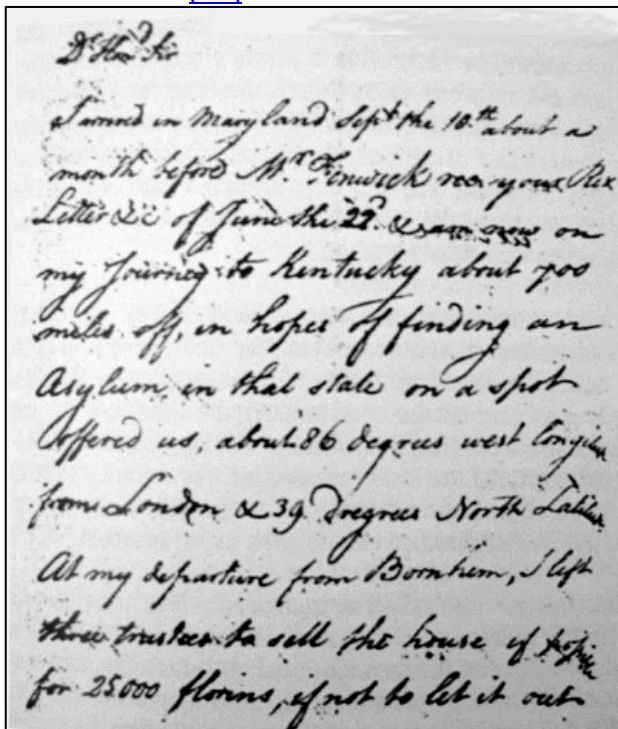 Dr Hond Sir
I arrived in Maryland Sept the 10.th about a
month before Mr Fenwick recd your Rex
Letter &c of June the 22d & am now on
my Journey to Kentucky about 700
miles off, in hopes of finding an
Asylum in that state on a spot
offered us, about 86 degrees west longitu
from London & 39 Degrees North Latitu
At my departure from Bornhem, I left
three trustees to sell the house if possible
for 25000 florins, if not to let it out